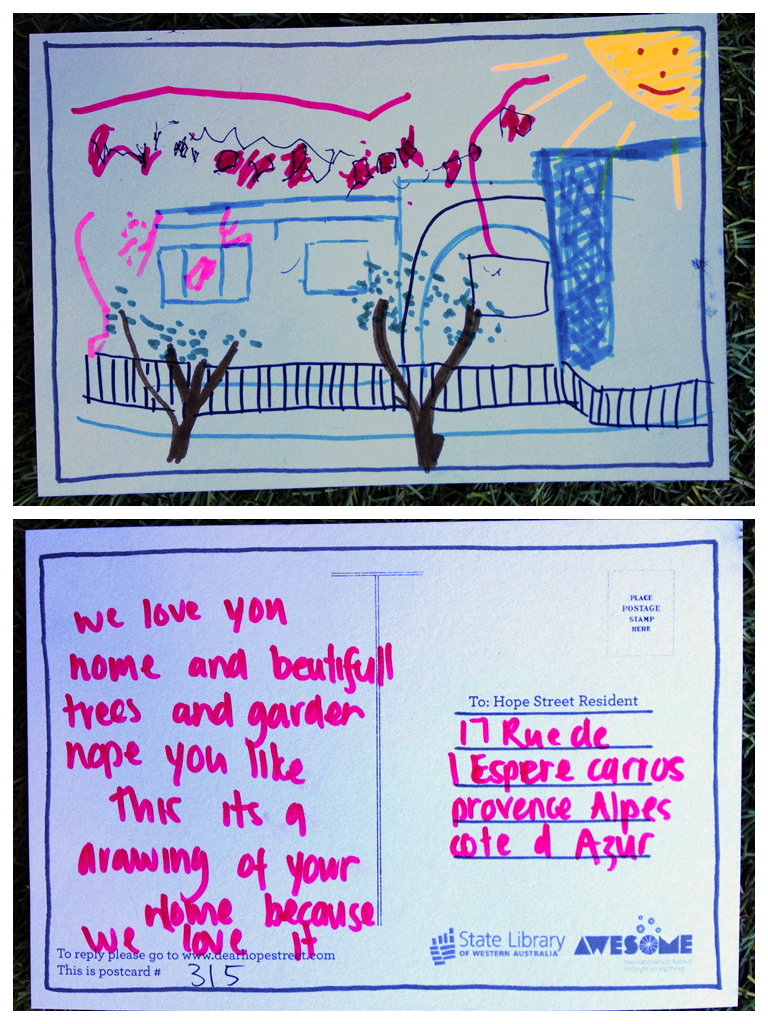 we love you
home and beutifull
trees and garden
hope you like
this its a
drawing of your
Home because
we love it
To reply please go to www.dearhopestreet.com
This is postcard # 315
PLACE
POSTAGE
STAMP
HERE
To: Hope Street Resident
17 Rue de
l Espere carros
provence Alpes
cote d Azur
State Library
OF WESTERN AUSTRALIA
AWESOME